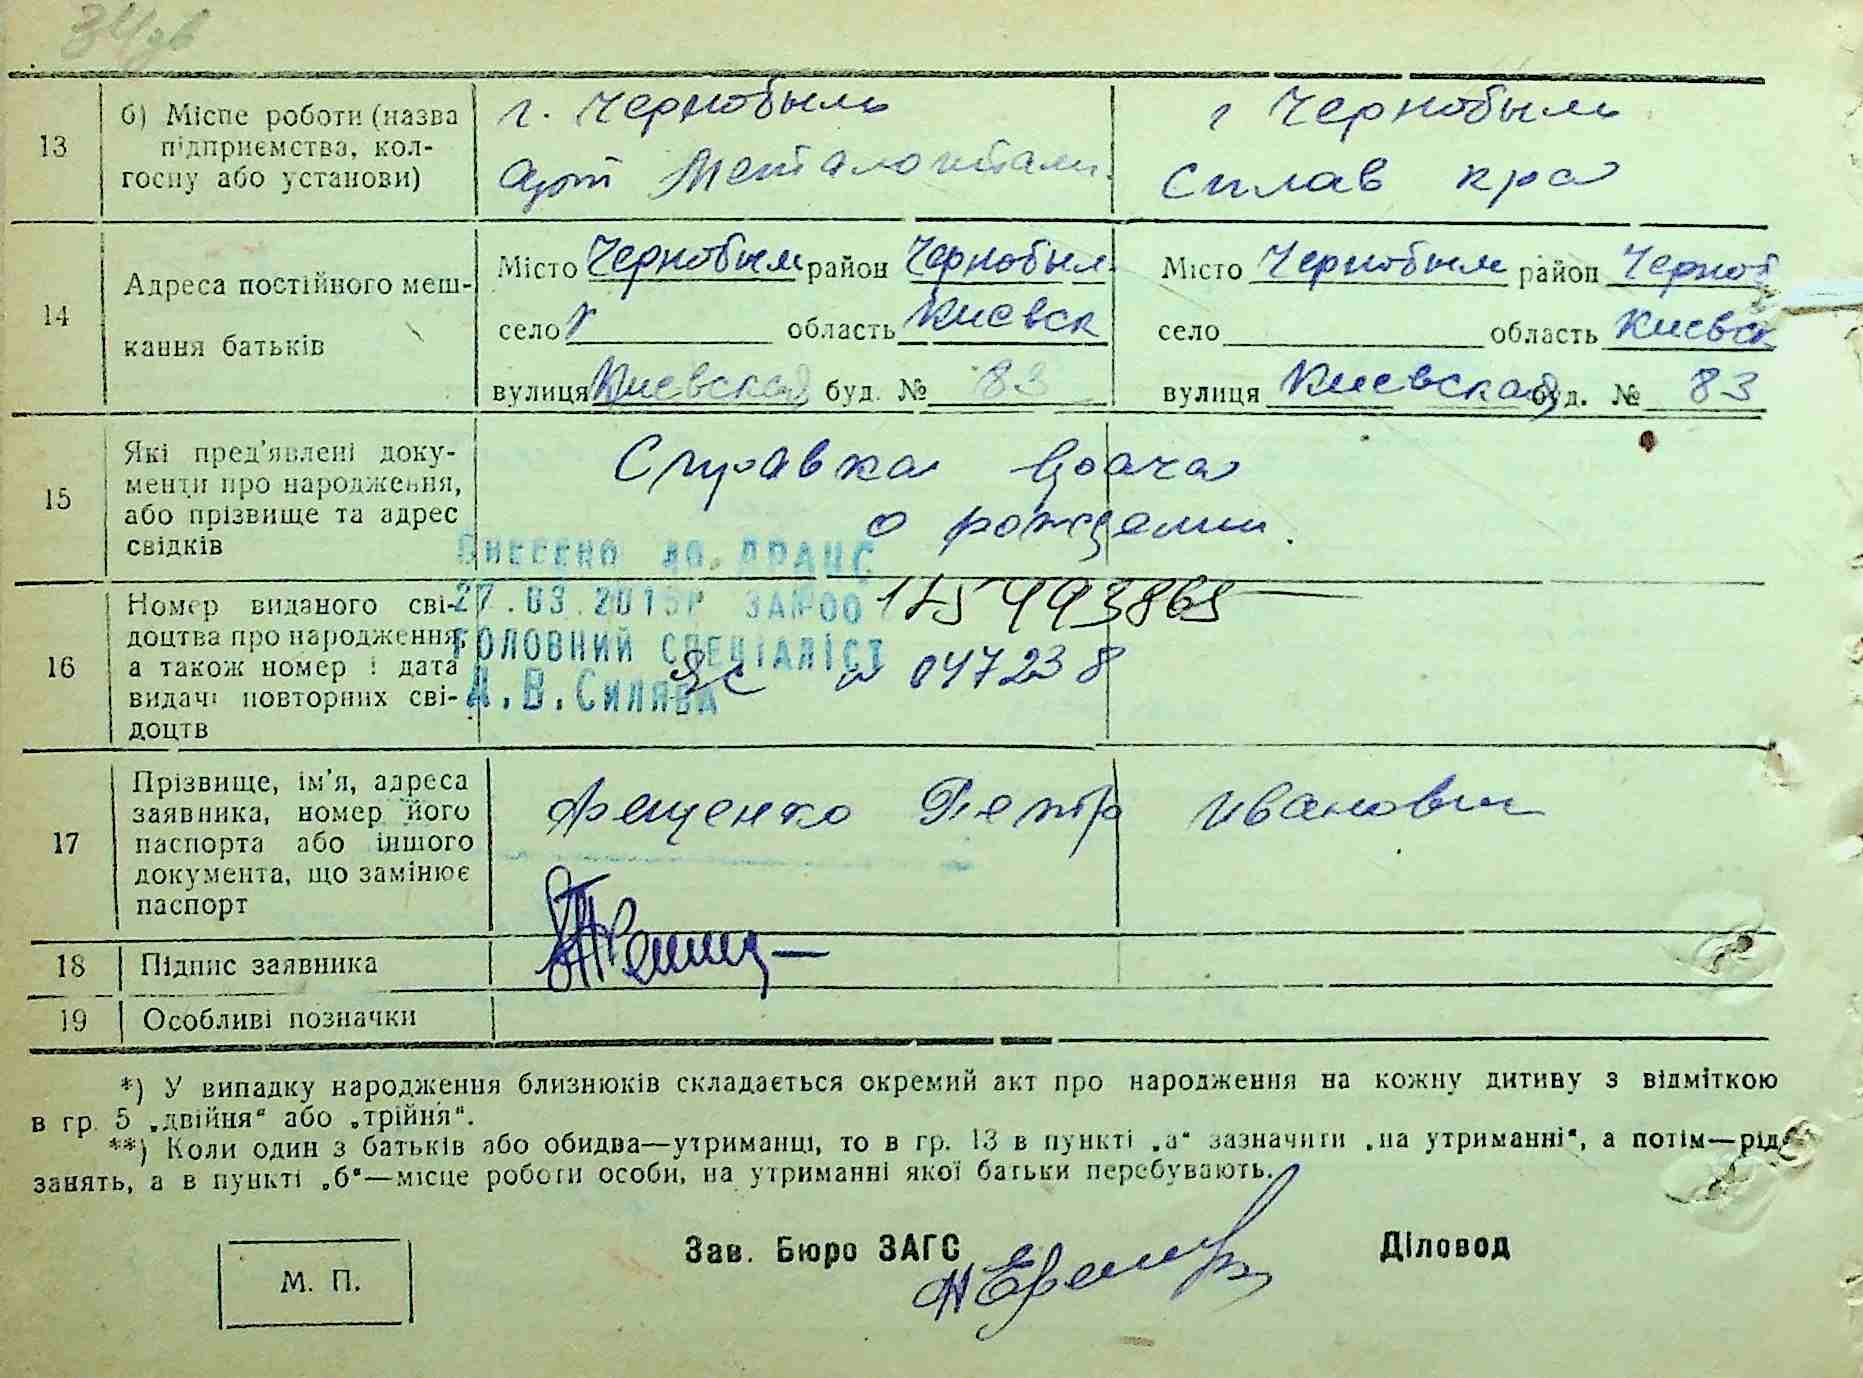 34дв
13
б) Місце роботи (назва
підприємства, кол-
госпу або установи)
г. Чернобыль
арт
г Чернобыль
Сплав
14
Адреса постійного меш-
кання батьків
Місто Чернобыль район Чернобыл
село область Киевск
вулиця Киевская буд. № 83
Місто Чернобыль район Черноб
село область Киевск
вулиця Киевская буд. № 83
15
Які пред'явлені доку-
менти про народження,
або прізвище та адрес
свідків
Справка врача
о рождении.
16
Номер виданого сві-
доцтва про народження,
а також номер і дата
видачі повторних сві-
доцтв
Внесено до ДРАЦС
27.03.2015р ЗА№00
ГОЛОВНИЙ СПЕЦІАЛІСТ
А.В.Силява
047238
17
Прізвище, ім'я, адреса
заявника, номер його
паспорта або іншого
документа, що замінює
паспорт
Фещенко Петр Иванович
18
Підпис заявника
19
Особливі позначки
*) У випадку народження близнюків складається окремий акт про народження на кожну дитину з відміткою
в гр. 5 „двійня“ або „трійня“.
**) Коли один з батьків або обидва—утриманці, то в гр. 13 в пункті „а“ зазначити „на утриманні“, а потім—рід
занять, а в пункті „б“—місце роботи особи, на утриманні якої батьки перебувають.
Зав. Бюро ЗАГС
Діловод
М. П.